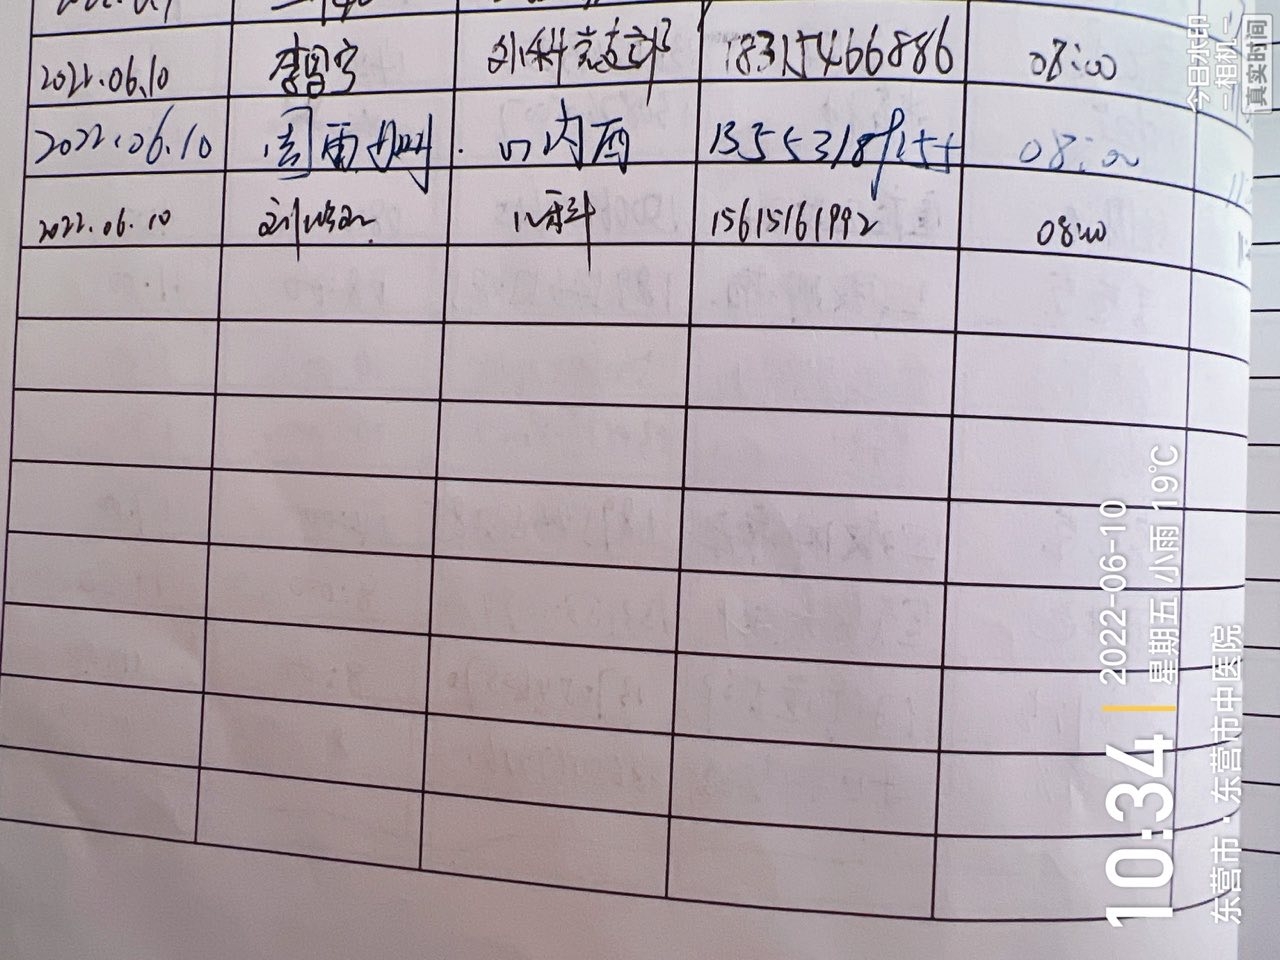 2022.06.10 李昌宁 外科党支部 18315466886 08:00
2022.06.10 周雷 内西 1355318 08:00
2022.06.10 刘 儿科 15615161992 08:00
今日水印
相机
真实时间
10:34 2022-06-10
星期五 小雨 19℃
东营市·东营市中医院